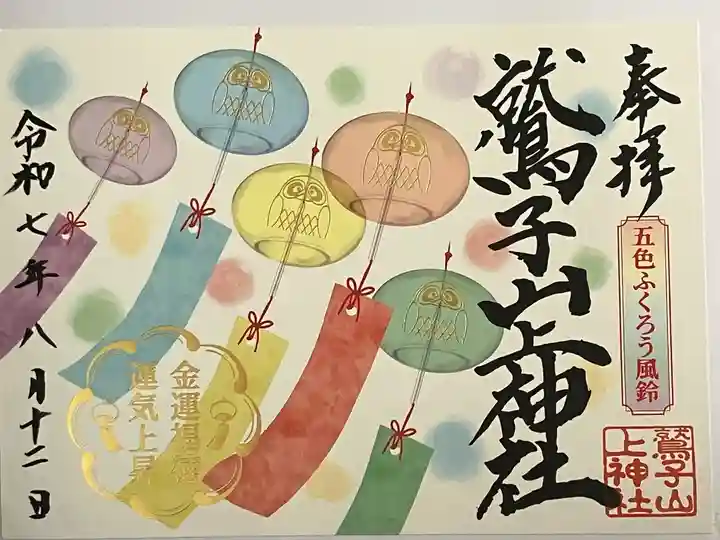 奉拝
五色ふくろう風鈴
鷲子山
上神社
鷲子山上神社
金運福徳
運気上昇
令和七年八月十二日